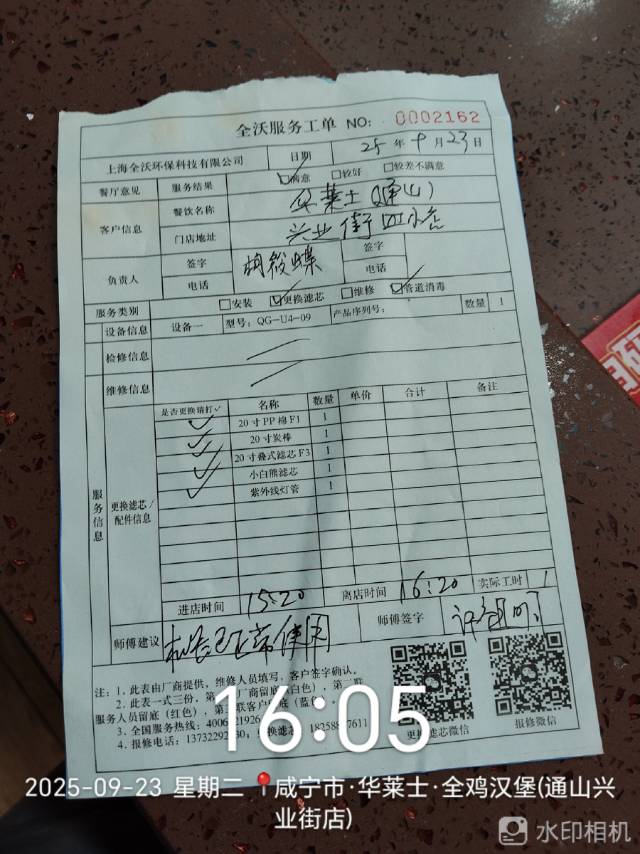 全沃服务工单 NO: 0002162
上海全沃环保科技有限公司 日期 25年9月23日
餐厅意见 服务结果 ☑满意 □较好 □较差不满意
客户信息 餐饮名称 华莱士(通山)
门店地址 兴业街
负责人 签字 签字
电话 电话
服务类别 □安装 ☑更换滤芯 □维修 ☑管道消毒
设备信息 设备一 型号: QG-U4-09 产品序列号: 数量 1
检修信息
维修信息
服务信息 更换滤芯/配件信息
是否更换请打✓ 名称 数量 单价 合计 备注
✓ 20寸PP棉F1 1
✓ 20寸炭棒 1
✓ 20寸叠式滤芯F3 1
✓ 小白熊滤芯 1
✓ 紫外线灯管 1
进店时间 15:20 离店时间 16:20 实际工时 1
师傅建议 机器已正常使用 师傅签字
注: 1. 此表由厂商提供, 维修人员填写, 客户签字确认。
2. 此表一式三份, 第 厂商留底(白色), 第二联
服务人员留底(红色), 第三联客户 底(蓝
3. 全国服务热线: 4006 21926
4. 报修电话: 13732292 30; 更换滤芯: 18258 7611
更换滤芯微信 报修微信
16:05
2025-09-23 星期二 咸宁市·华莱士·全鸡汉堡(通山兴
业街店)
水印相机